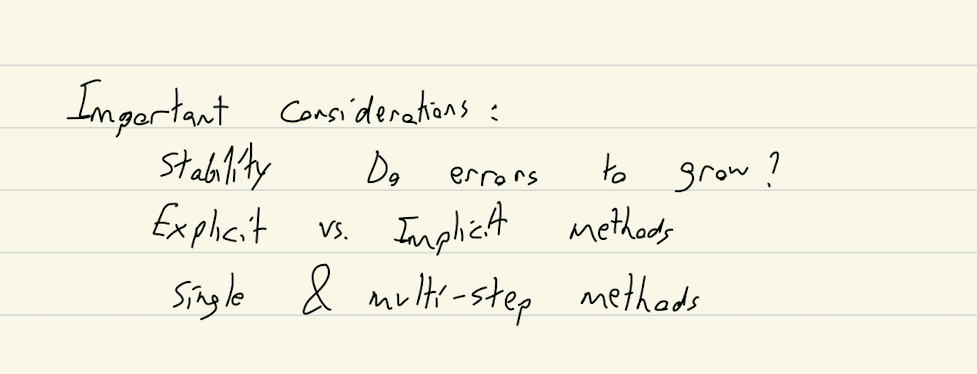 Important Considerations:
Stability Do errors to grow?
Explicit vs. Implicit methods
Single & multi-step methods